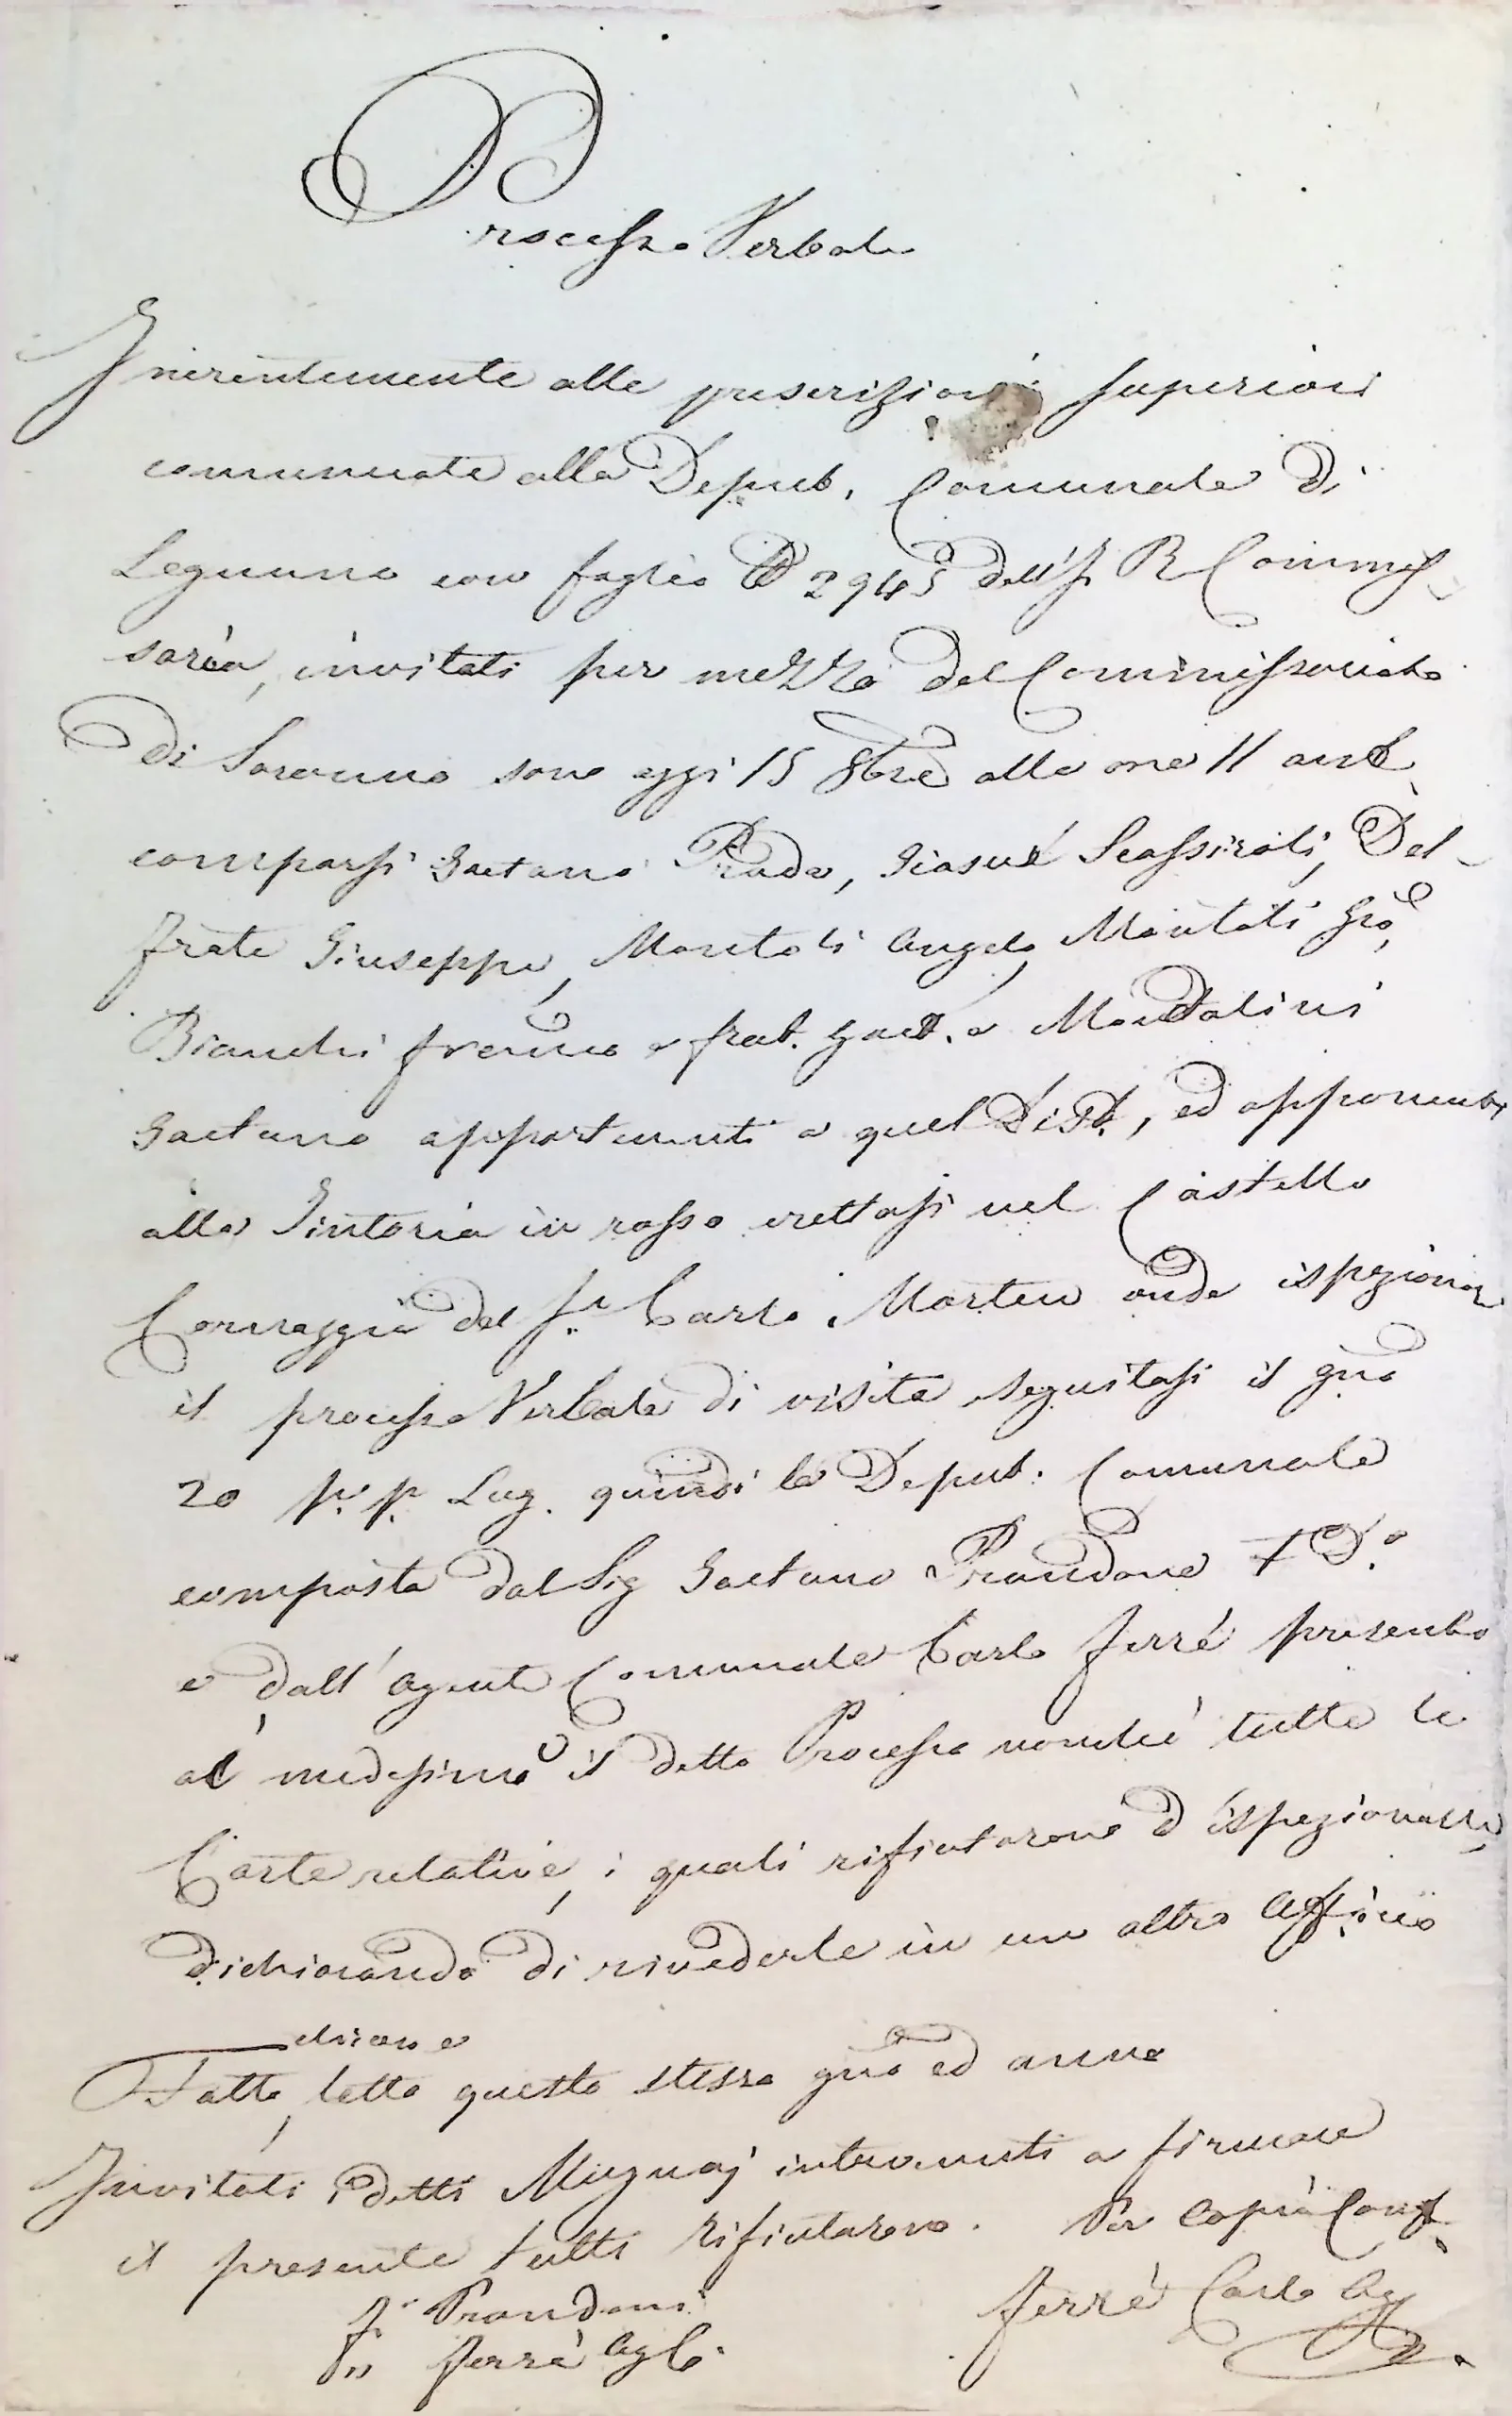 Processo Verbale
Inerentemente alle prescrizioni superiori
comunicate alla Deput. Comunale di
Legnano con foglio 2945 dell'I. R. Commis-
saria, invitati per mezzo del Commissariato
di Saronno sono oggi 15 8bre alle ore 11 ant.
comparsi Gaetano Prada, Giosué Scossiroli, Del-
frate Giuseppe, Montoli Angelo, Montoli Gio,
Bianchi Franco e frat. Gaet. e Mondolini
Gaetano appartenenti a quel Dist., ed opponenti
alla Tintoria in rosso erettasi nel Castello
Cornaggia del Sr. Carlo Martin onde ispezionar
il processo Verbale di visita seguitasi il gno
20 p. p. Lug. quindi la Deput. Comunale
composta dal Sig Gaetano Prandone
e dall'agente Comunale Carlo Ferré presentò
al medesimo il detto Processo nonché tutte le
Carte relative, i quali rifiutarono d'ispezionarle,
dichiarando di rivederle in un altro Officio
Fatto, letto questo stesso gno ed anno
Invitati i detti Mugnaj intervenuti a firmare
il presente tutti rifiutarono. Per Copia Conf.
f. Prandoni
f. Ferrè Ag. C.
Ferrè Carlo Ag